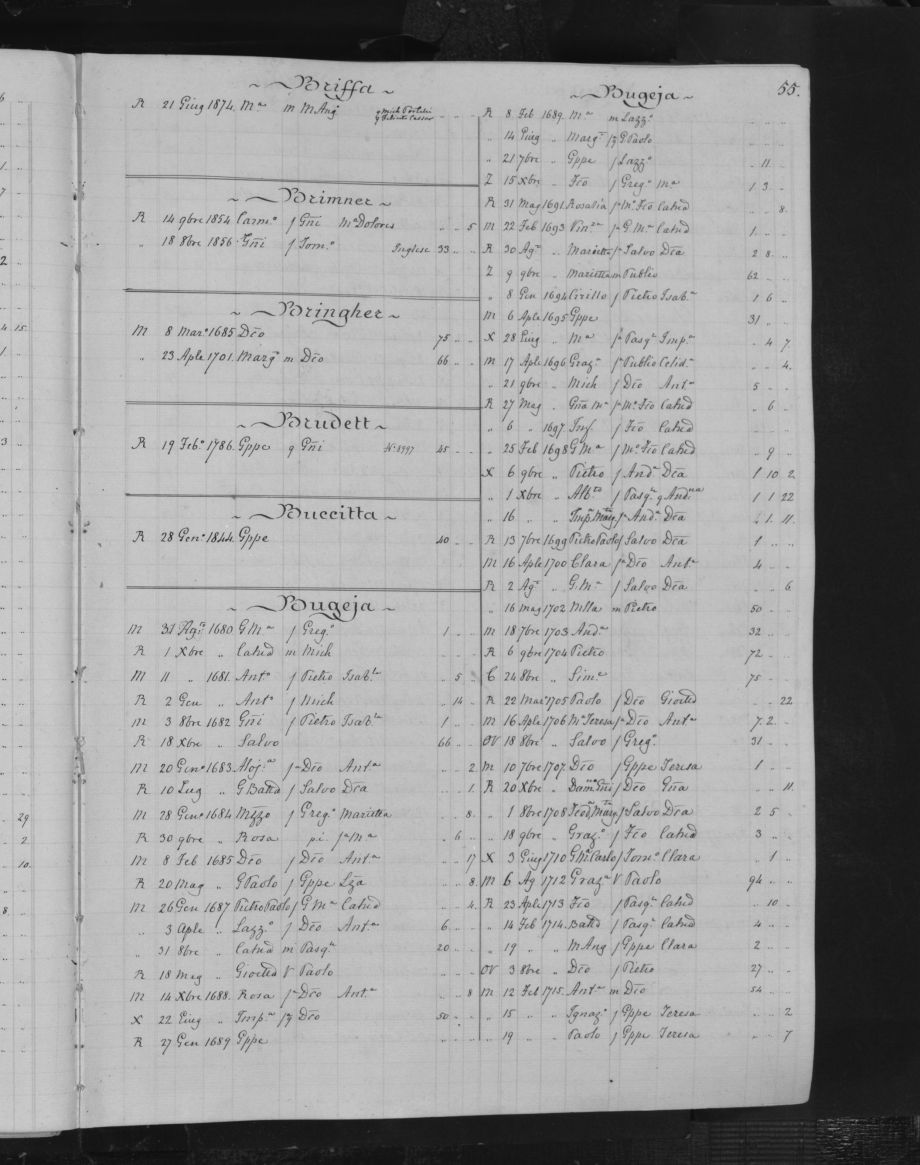 55.
~ Briffa ~
R 21 Giug 1874. Mª m M Ang q Mich Portelli q Felicita Cassar .. .. ..
~ Brimner ~
R 14 9bre 1854 Carmº f Gñi Mª Dolores .. .. 5
" 18 8bre 1856 Gñi f Tomº Inglese 33 .. ..
~ Bringher ~
M 8 Marº 1685 Dco 75 .. ..
" 23 Aple 1701. Margª m Dco 66 .. ..
~ Brudett ~
R 19 Febº 1786. Gppe q Gñi 45 .. ..
~ Buccitta ~
R 28 Genº 1844. Gppe 40 .. ..
~ Bugeja ~
M 31 Agº 1680 G Mª f Gregº 1 .. ..
R 1 Xbre " Catrid m Mich .. .. ..
M 11 " 1681. Antº f Pietro Isabª .. 5 ..
R 2 Gen " Antº f Mich .. 14 ..
M 3 8bre 1682 Gñi f Pietro Isabª 1 .. ..
R 18 Xbre " Salvo 66 .. ..
M 20 Genº 1683. Aloyª fª Dco Antª .. .. 2
R 10 Lug " G Batta f Salvo Dca .. .. 1.
M 28 Genº 1684 Mzzo f Gregº Marietta .. .. 8.
R 30 9bre " Rosa pi fª Mª .. 6 ..
M 8 Feb 1685 Dco f Dco Antª .. .. 17
R 20 Mag " G Paolo f Gppe Lza .. .. 8
M 26 Gen 1687 Pietro Paolo f G Mª Catrid .. .. 4.
" 3 Aple " Lazzº f Dco Antª 6 .. ..
" 31 8bre " Catrid m Pasqª 20 .. ..
R 18 Mag " Gioetta V Paolo .. .. ..
M 14 Xbre 1688. Rosa fª Dco Antª .. .. 8
X 22 Giug " Impª f z Dco 50 .. ..
R 27 Gen 1689 Gppe .. .. ..
~ Bugeja ~
R 8 Feb 1689. Mª m Lazzº .. .. ..
" 14 Giug " Margª f z G Paolo .. .. ..
" 21 7bre " Gppe f Lazzº .. 11 ..
Z 15 Xbre " Fco f Gregº Mª 1 3 ..
R 31 Mag 1691. Rosalia fª Mº Fco Catrid .. .. 8.
M 22 Feb 1693 Vinzª fª G. Mª Catrid 1 .. ..
R 30 Agº " Marietta fª Salvo Dca 2 8 ..
Z 9 9bre " Marietta m Publio 62 .. ..
" 8 Gen 1694 Cirillo f Pietro Isabª 1 6 ..
M 6 Aple 1695 Gppe 31 .. ..
X 28 Giug " Mª fª Pasqº Impª .. 4 7
M 17 Aple 1696 Grazª fª Publio Celidª .. .. 4.
" 21 9bre " Mich f Dco Antª 5 .. ..
R 27 Mag " Gña Mª fª Mº Fco Catrid .. 6 ..
" 6 " 1697 Inf. f Fco Catrid .. .. ..
" 25 Feb 1698 G Mª f Mº Fco Catrid .. 9 ..
X 6 9bre " Pietro f Andª Dca 1 10 2
" 1 Xbre " Albto f Pasqº q Andna 1 1 22
" 16 " " Impª Margª fª Andª Dca .. 1. 11.
R 13 7bre 1699 Pietro Paolo f Salvo Dca 1 .. ..
M 16 Aple 1700 Clara fª Dco Antª 4 .. ..
R 2 Agº " G. Mª f Salvo Dca .. .. 6
" 16 Mag 1702 Nlla m Pietro 50 .. ..
M 18 7bre 1703 Andª 32 .. ..
R 6 9bre 1704 Pietro 72 .. ..
C 24 8bre " Simº 75 .. ..
R 22 Mar 1705 Paolo f Dco Gioetta .. .. 22
M 16 Aple 1706 Mª Teresa fª Dco Antª 7 2 ..
OV 18 8bre " Salvo f Gregº 31 .. ..
M 10 7bre 1707 Dco f Gppe Teresa 1 .. ..
R 20 Xbre " Damº Gñi f Dco Gña .. .. 11.
" 1 8bre 1708 Fcoª Margª fª Salvo Dca 2 5 ..
" 18 9bre " Grazº f Fco Catrid 3 .. ..
X 3 Giug 1710 G Mª Carlo f Tomº Clara .. 1 ..
M 6 Ag 1712 Grazª V Paolo 94 .. ..
R 23 Aple 1713 Fco f Pasqº Catrid .. 10 ..
" 14 Feb 1714. Batta f Pasqº Catrid 4 .. ..
" 19 " " M Ang f Gppe Clara 2 .. ..
OV 3 8bre " Dco f Pietro 27 .. ..
M 12 Feb 1715. Antª m Dco 54 .. ..
" 15 " " Ignazº f Gppe Teresa .. .. 2
" 19 " " Paolo f Gppe Teresa .. .. 7